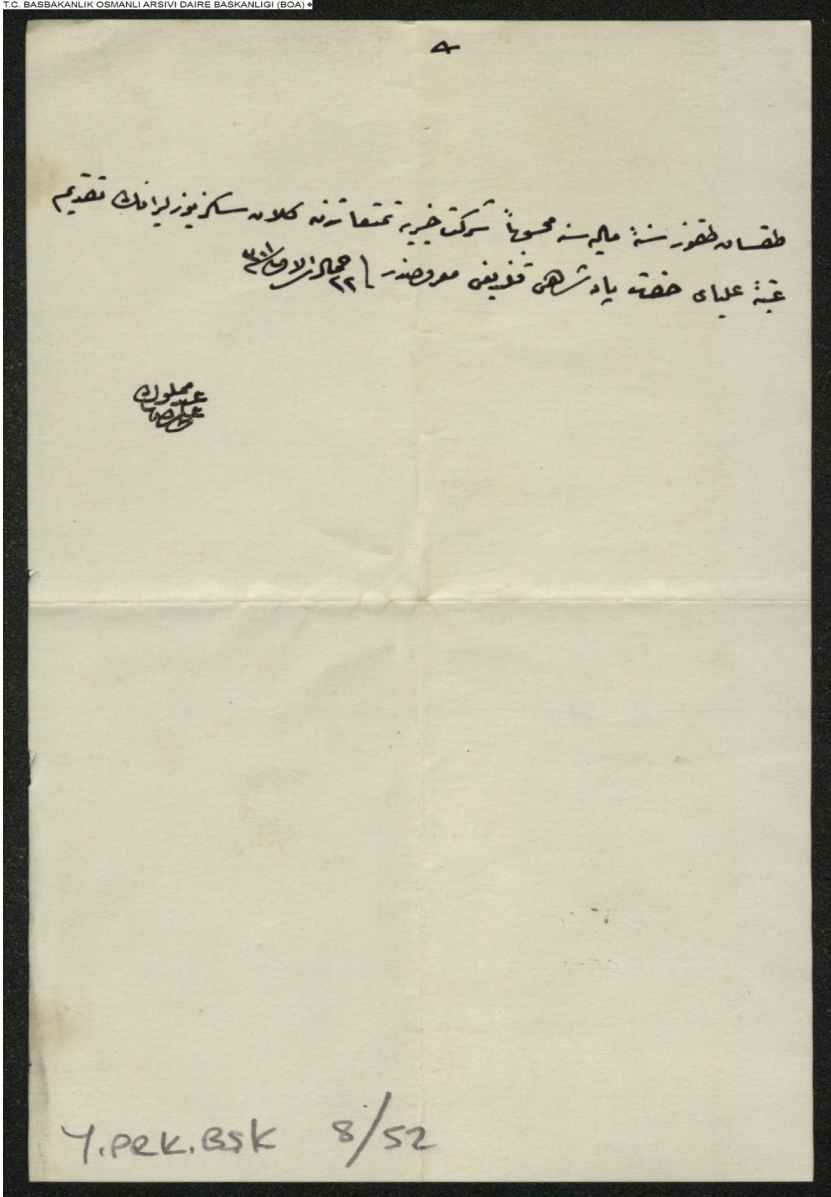 T.C. BASBAKANLIK OSMANLI ARSIVI DAIRE BASKANLIGI (BOA)
طقسان طقوز سنۀ مالیه سنه محسوباً شرکت خیریه تمتعاتندن کلان سکز یوز لیرانك تقدیم
عتبۀ علیای حضرت پادشاهی قلندیغی معروضدر ٢٢ جمادی الاول ٣٠١
عبد مملوك
Y.PRK.BŞK 8/52